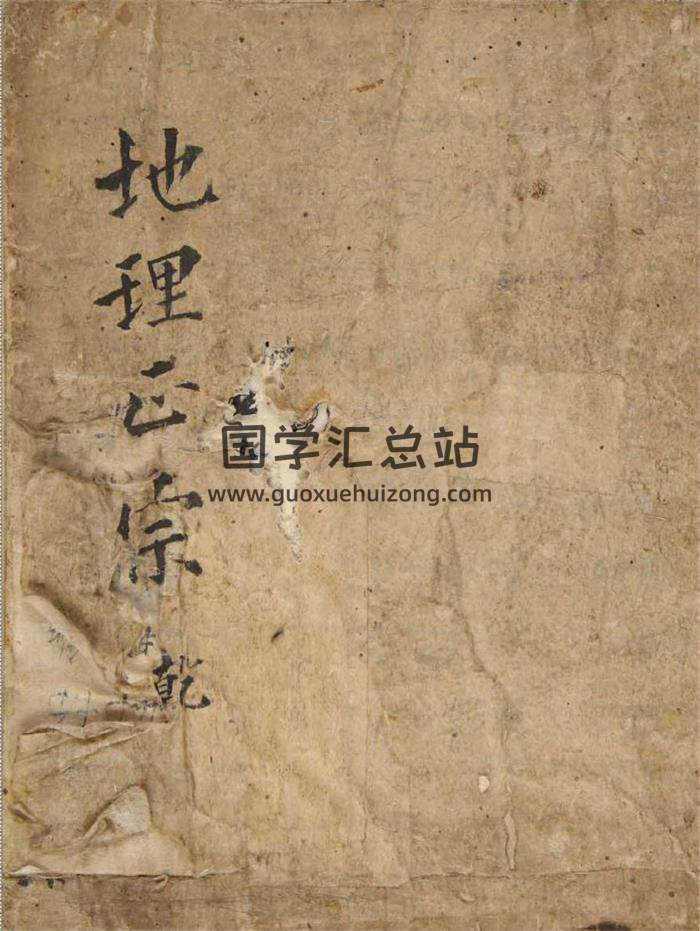 地理正宗
乾
国学汇总站
www.guoxuehuizong.com